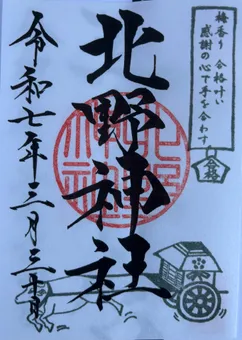 梅香り 合格叶い
感謝の心で手を合わす
合格
北野神社
令和七年三月三十日